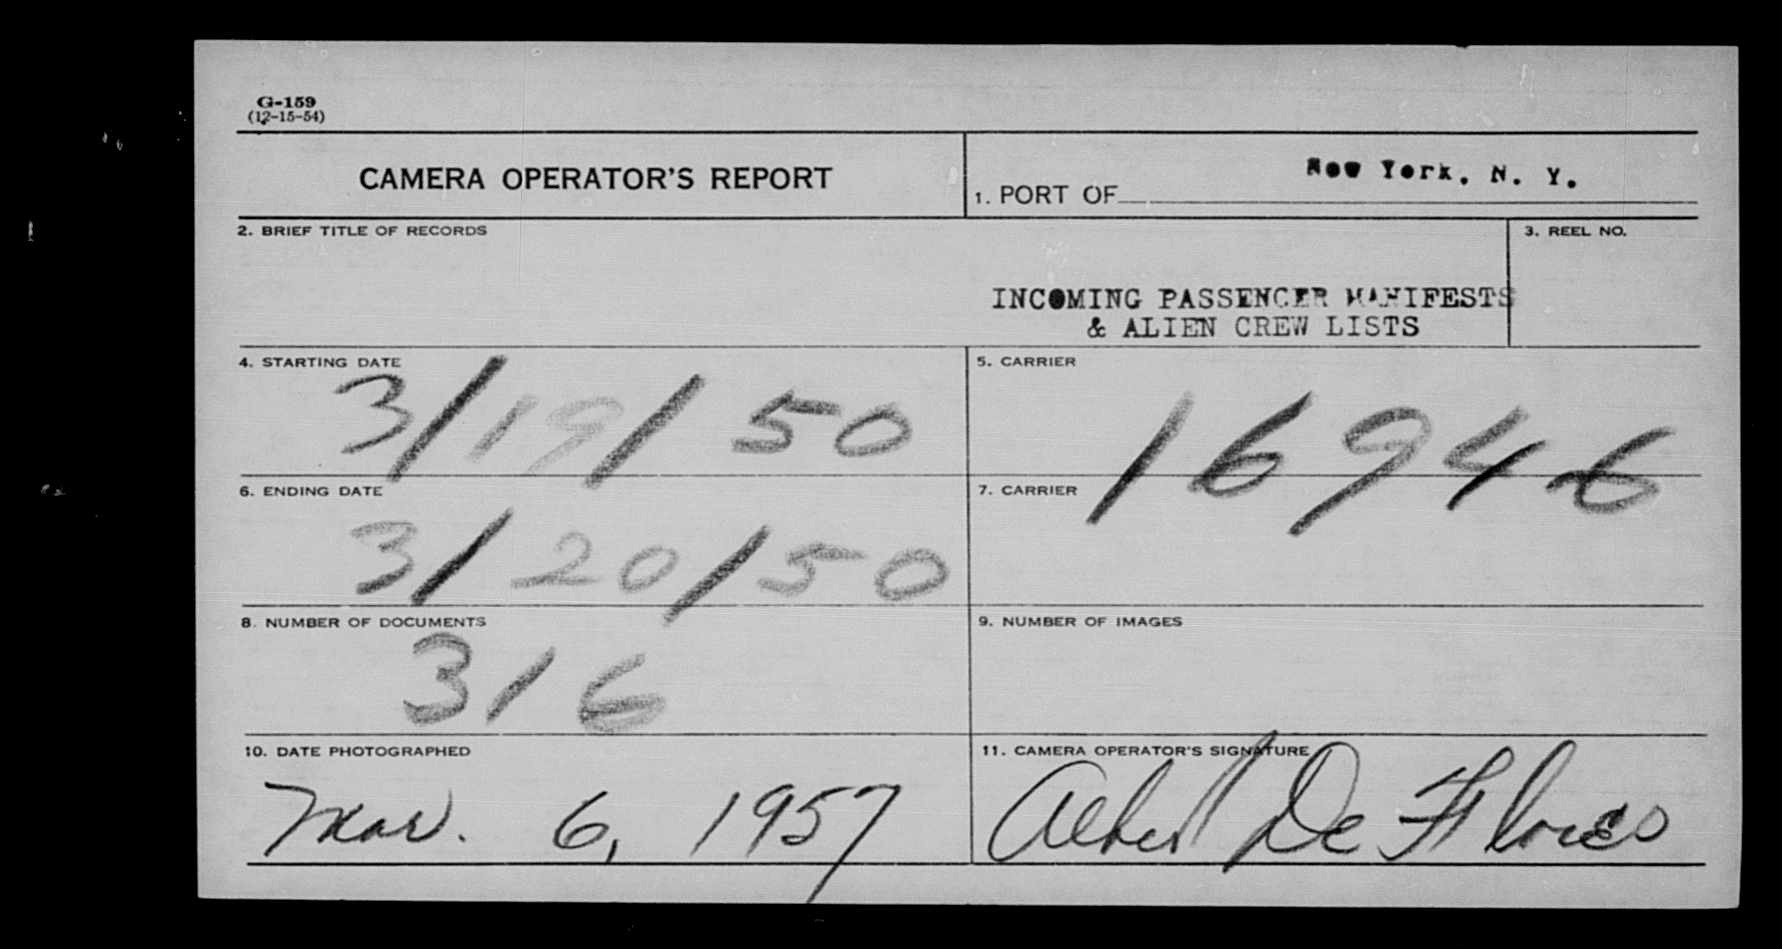 G-159
(12-15-54)
CAMERA OPERATOR'S REPORT
1. PORT OF New York, N. Y.
2. BRIEF TITLE OF RECORDS
3. REEL NO.
INCOMING PASSENGER MANIFESTS
& ALIEN CREW LISTS
4. STARTING DATE
3/19/50
5. CARRIER
16946
6. ENDING DATE
3/20/50
7. CARRIER
8. NUMBER OF DOCUMENTS
316
9. NUMBER OF IMAGES
10. DATE PHOTOGRAPHED
Mar. 6, 1957
11. CAMERA OPERATOR'S SIGNATURE
Albert De